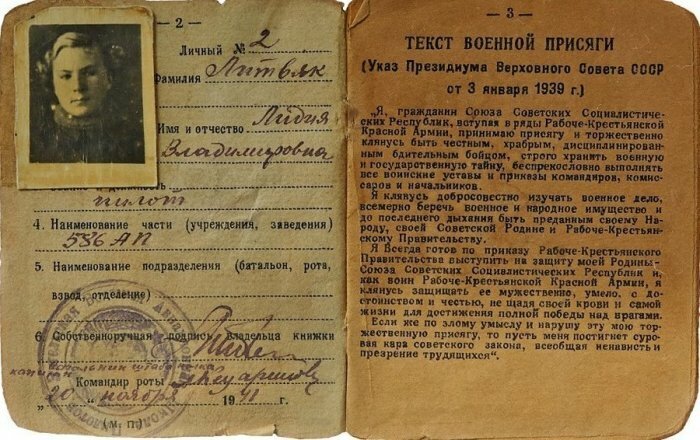 — 2 —
Личный № 2
Фамилия Литвяк
Имя и отчество Лидия
Владимировна
пилот
4. Наименование части (учреждения, заведения)
586 АП
5. Наименование подразделения (батальон, рота,
взвод, отделение)
6. Собственноручная подпись владельца книжки
Командир роты
„20" ноября 1941 г.
(м. п.)
— 3 —
ТЕКСТ ВОЕННОЙ ПРИСЯГИ
(Указ Президиума Верховного Совета СССР
от 3 января 1939 г.)
„Я, гражданин Союза Советских Социалистиче-
ских Республик, вступая в ряды Рабоче-Крестьянской
Красной Армии, принимаю присягу и торжественно
клянусь быть честным, храбрым, дисциплинирован-
ным бдительным бойцом, строго хранить военную
и государственную тайну, беспрекословно выполнять
все воинские уставы и приказы командиров, комис-
саров и начальников.
Я клянусь добросовестно изучать военное дело,
всемерно беречь военное и народное имущество и
до последнего дыхания быть преданным своему На-
роду, своей Советской Родине и Рабоче-Крестьян-
скому Правительству.
Я Всегда готов по приказу Рабоче-Крестьянского
Правительства выступить на защиту моей Родины-
Союза Советских Социалистических Республик и,
как воин Рабоче-Крестьянской Красной Армии, я
клянусь защищать ее мужественно, умело, с до-
стоинством и честью, не щадя своей крови и самой
жизни для достижения полной победы над врагами.
Если же по злому умыслу я нарушу эту мою тор-
жественную присягу, то пусть меня постигнет суро-
вая кара советского закона, всеобщая ненависть и
презрение трудящихся“.